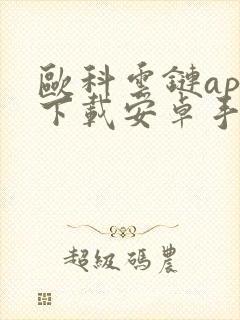 歐科雲鏈ap
下載安卓手
超級碼農